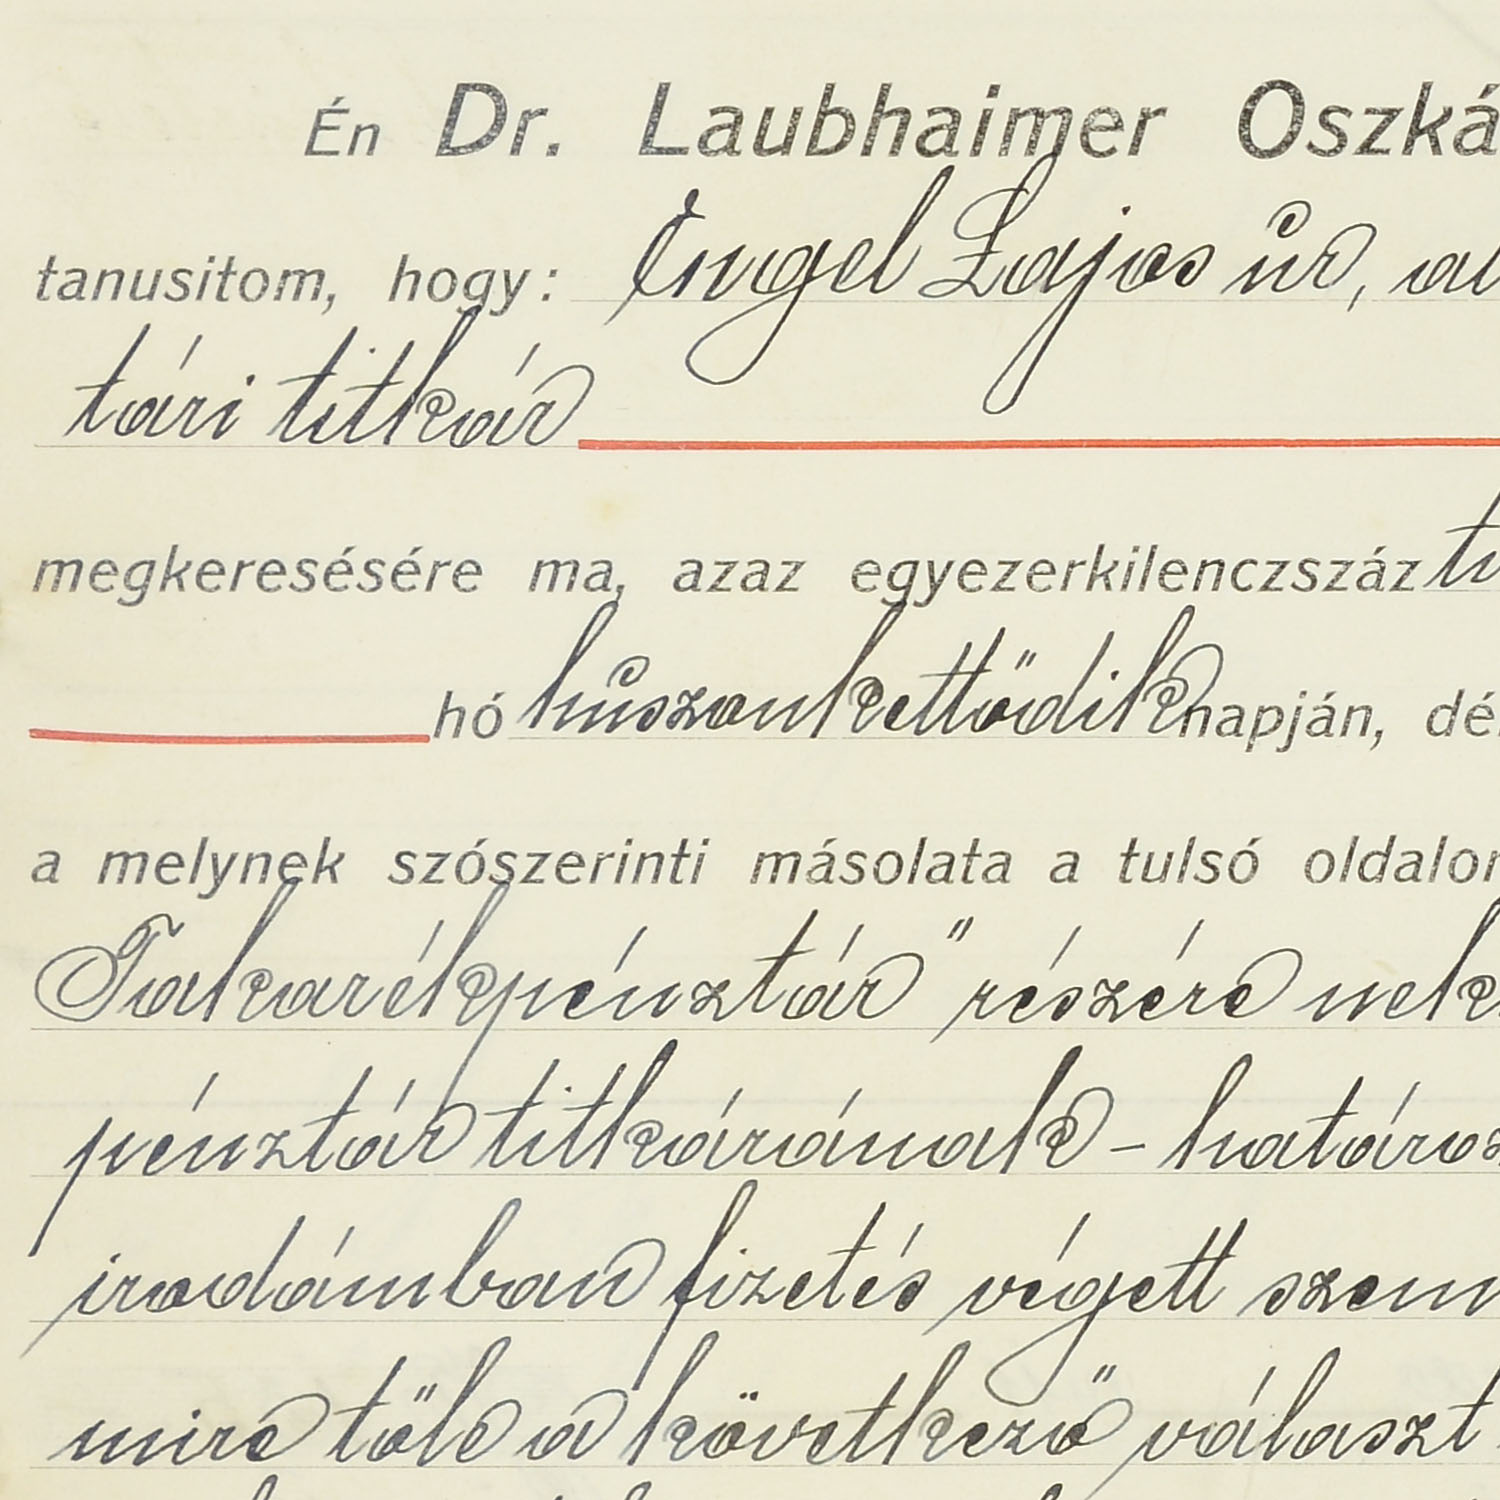 Én Dr. Laubhaimer Oszká
tanusitom, hogy: Engel Lajos úr,
tári titkár
megkeresésére ma, azaz egyezerkilenczszáz
hó huszonkettődik napján,
a melynek szószerinti másolata a tulsó oldalon
Takarékpénztár" részére nek
pénztár titkárának - határoz
irodámban fizetés végett szem
mire tőle a következő választ